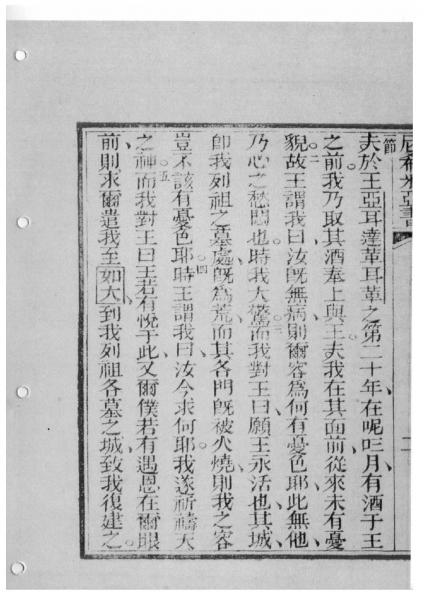 尼希米亞書
二
一節
夫於王亞耳達革耳革之第二十年在呢吅月有酒于王
之前我乃取其酒奉上與王夫我在其面前從來未有憂
二
貌故王謂我曰汝既無病則爾容為何有憂色耶此無他
乃心之愁悶也時我大驚而我對王曰願王永活也其城
三
卽我列祖之墓處既為荒而其各門既被火燒則我之容
豈不該有憂色耶時王謂我曰汝今求何耶我遂祈禱天
四
之神而我對王曰王若有悅于此又爾僕若有遇恩在爾眼
五
前則求爾遣我至如大到我列祖各墓之城致我復建之